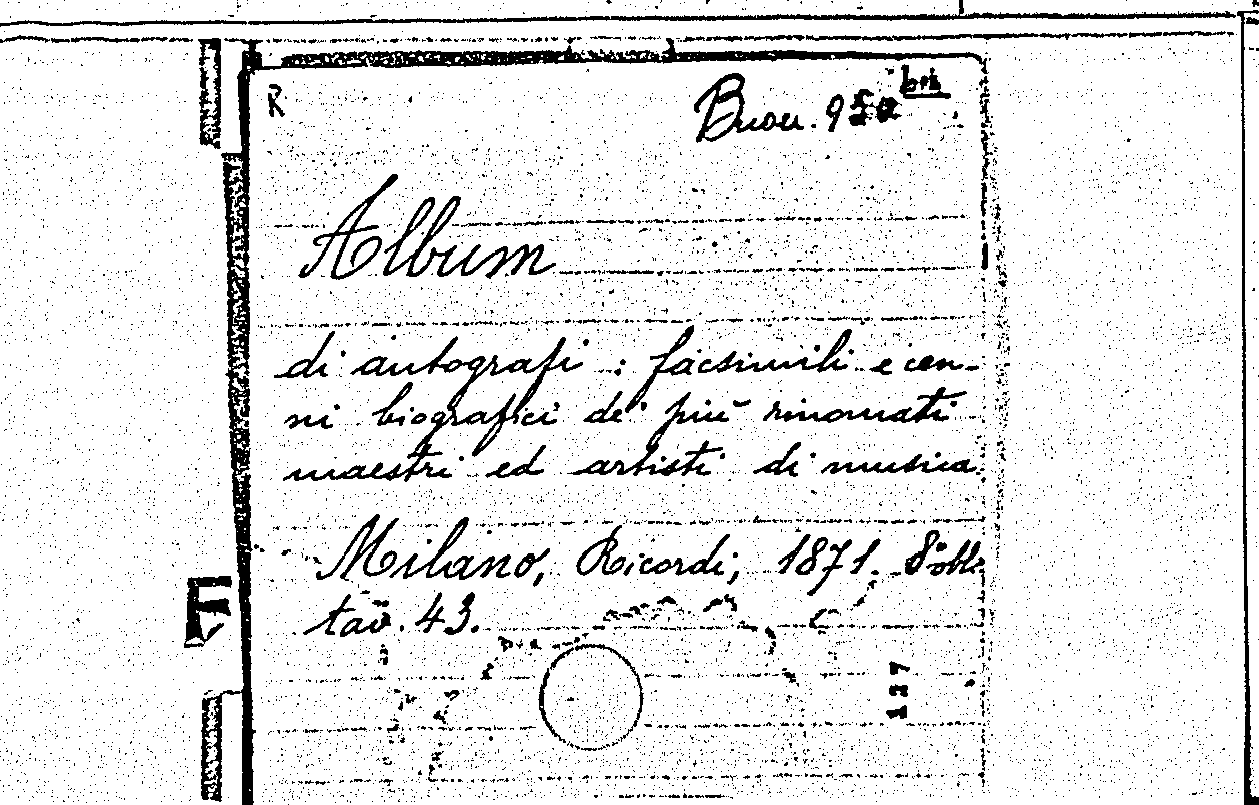 R
Buau. 950 bis
Album
di autografi : facsimili e cen-
ni biografici de' più rinomati
maestri ed artisti di musica.
Milano, Ricordi, 1871. 8°
tav. 43.
F
127